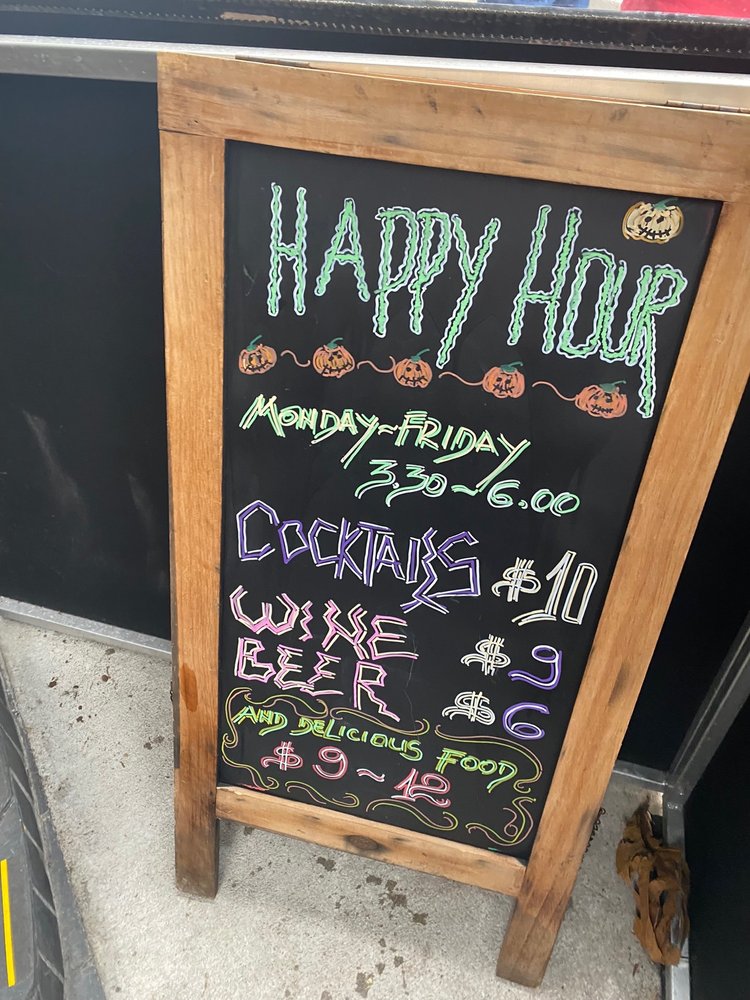 HAPPY HOUR
MONDAY~FRIDAY
3.30~6.00
COCKTAILS $10
WINE $9
BEER $6
AND DELICIOUS FOOD
$9~12